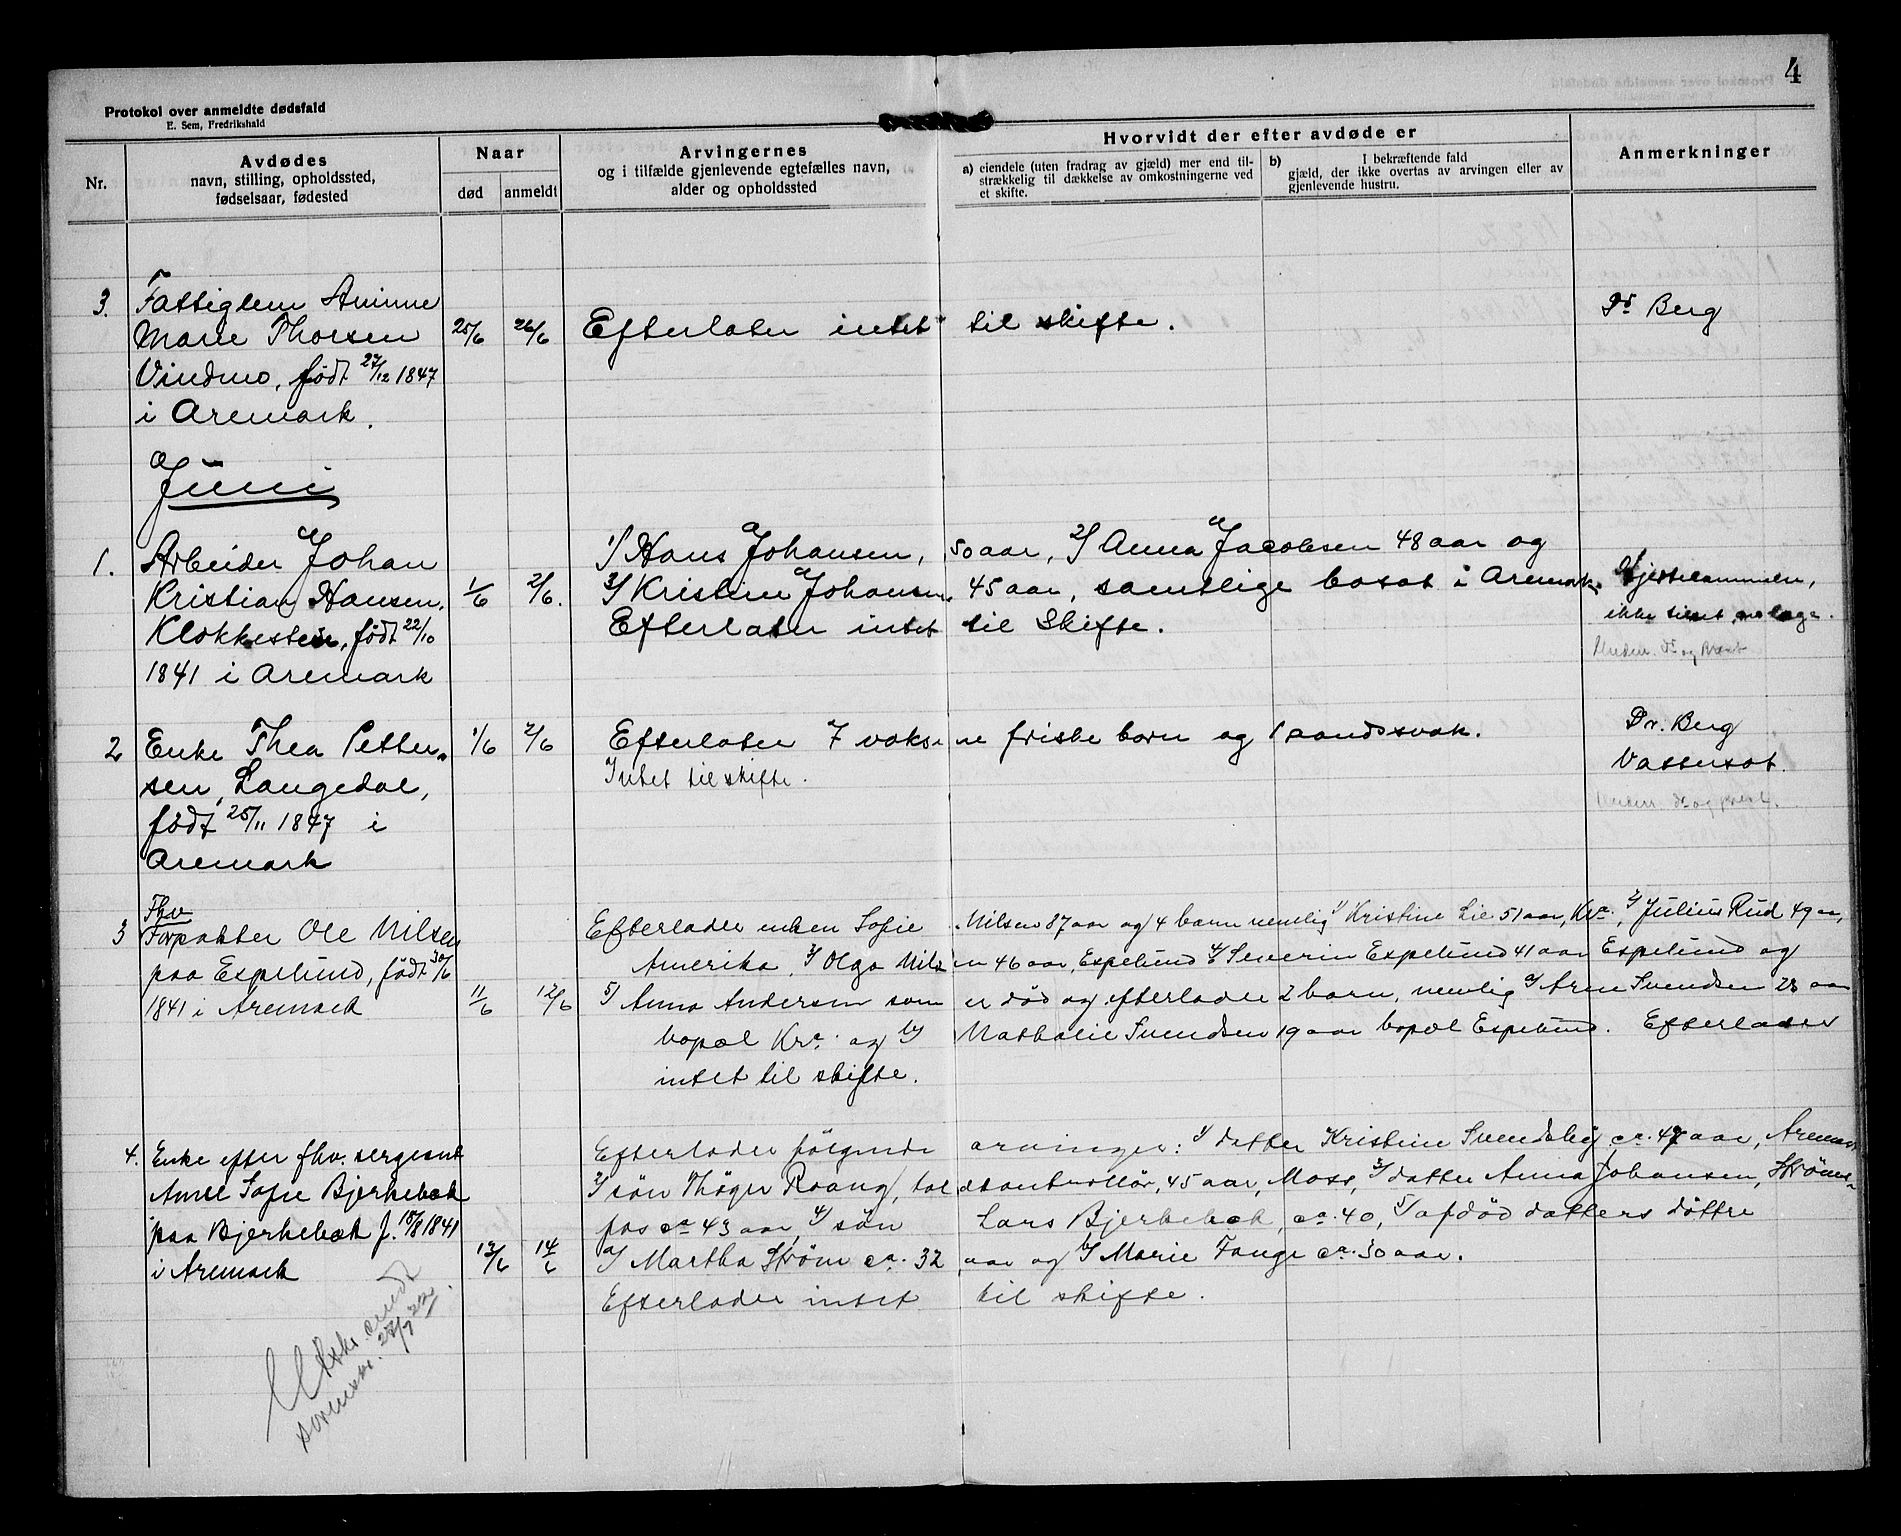 4
Protokol over anmeldte dødsfald
E. Sem, Fredrikshald
Nr.
Avdødes
navn, stilling, opholdssted,
fødselsaar, fødested
Naar
død
anmeldt
Arvingernes
og i tilfælde gjenlevende egtefælles navn,
alder og opholdssted
Hvorvidt der efter avdøde er
a) eiendele (uten fradrag av gjæld) mer end til-
strækkelig til dækkelse av omkostningerne ved
et skifte.
b) I bekræftende fald
gjæld, der ikke overtas av arvingen eller av
gjenlevende hustru.
Anmerkninger
3. Fattiglem
Marie Thorsen 25/6 26/6 Efterlater intet til skifte. Dr Berg
Vindmo, født 27/12 1847
i Aremark.
Juni
1. Arbeider Johan 1/ Hans Johansen, 50 aar, 2/ Anna Jacobsen 48 aar og
Kristian Hansen, 1/6 2/6. 3/ Kristine Johansen, 45 aar, samtlige bosat i Aremark. Hjertelammelse,
Klokkestein, født 22/10 Efterlater intet til Skifte. ikke læge.
1841 i Aremark
2 Enke Thea Petter- 1/6 2/6 Efterlater 7 voksne friske børn og 1 aandssvak. Dr. Berg
sen, Langedal, Intet til skifte. Vattersot.
født 25/11 1847 i
Aremark
Fhv
3 Forpakter Ole Nilsen Efterlader enken Sofie Nilsen 87 aar og 4 barn nemlig 1/ Kristine Lie 51 aar, Kra., 2/ Julius Rud 49 aar,
paa Espelund, født 30/6 Amerika, 3/ Olga Nilsen 46 aar, Espelund 4/ Severin Espelund 41 aar Espelund og
1841 i Aremark 11/6 12/6 5/ Anna Andersen som er død og efterlader 2 barn, nemlig a/ Arne Svendsen 28 aar
bopæl Kra. og b/ Mathalie Svendsen 19 aar bopæl Espelund. Efterlader
intet til skifte.
4. Enke efter fhv. sergeant Efterlader følgende arvinger: 1/ datter Kristine Svendsby ca. 47 aar, Aremark
Anne Sofie Bjerkebæk 2/ søn Thøger Roang, toldkontrollør, 45 aar, Moss, 3/ datter Anna Johansen, Strøms-
paa Bjerkebæk f. 18/8 1841 fos ca 43 aar, 4/ søn Lars Bjerkebæk, ca. 40, 5/ afdød datters døttre
i Aremark 13/6 14/6 a/ Martha Strøm ca. 32 aar og b/ Marie Fange ca. 30 aar.
Efterlader intet til skifte.